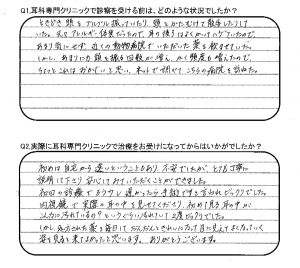 Q1.耳科専門クリニックで診察を受ける前は、どのような状況でしたか？
ときどき頭をプルプル振っていたり、頭をかたむけて散歩したりして
いた。元々アレルギー体質だったので、耳の後ろはよくかいてハゲていたので、
あまり気にせず、近くの動物病院でいただいた薬を飲ませていた。
しかし、あまりにも頭を振る回数が増え、かく頻度も増えたので、
ちょっとこれはおかしいと思い、ネットで調べてこちらの病院を訪れた。
Q2.実際に耳科専門クリニックで治療をお受けになってからはいかがでしたか？
初めは自宅から遠いということもあり不安でしたが、とても丁寧に
説明して下さり安心しておいていただくことができました。
初回の診察でもう少し遅かったら手術ですと言われビックリでした。
内視鏡で実際の耳の中を見せてくださり、初めて見る耳の中が
こんなに汚れているの？というくらい汚れていて2度ビックリでした。
しかし、処方された薬を毎日してだんだんときれいになって目に見えてよくなっていく
姿を見ると来てよかったと思います。ありがとうございます。